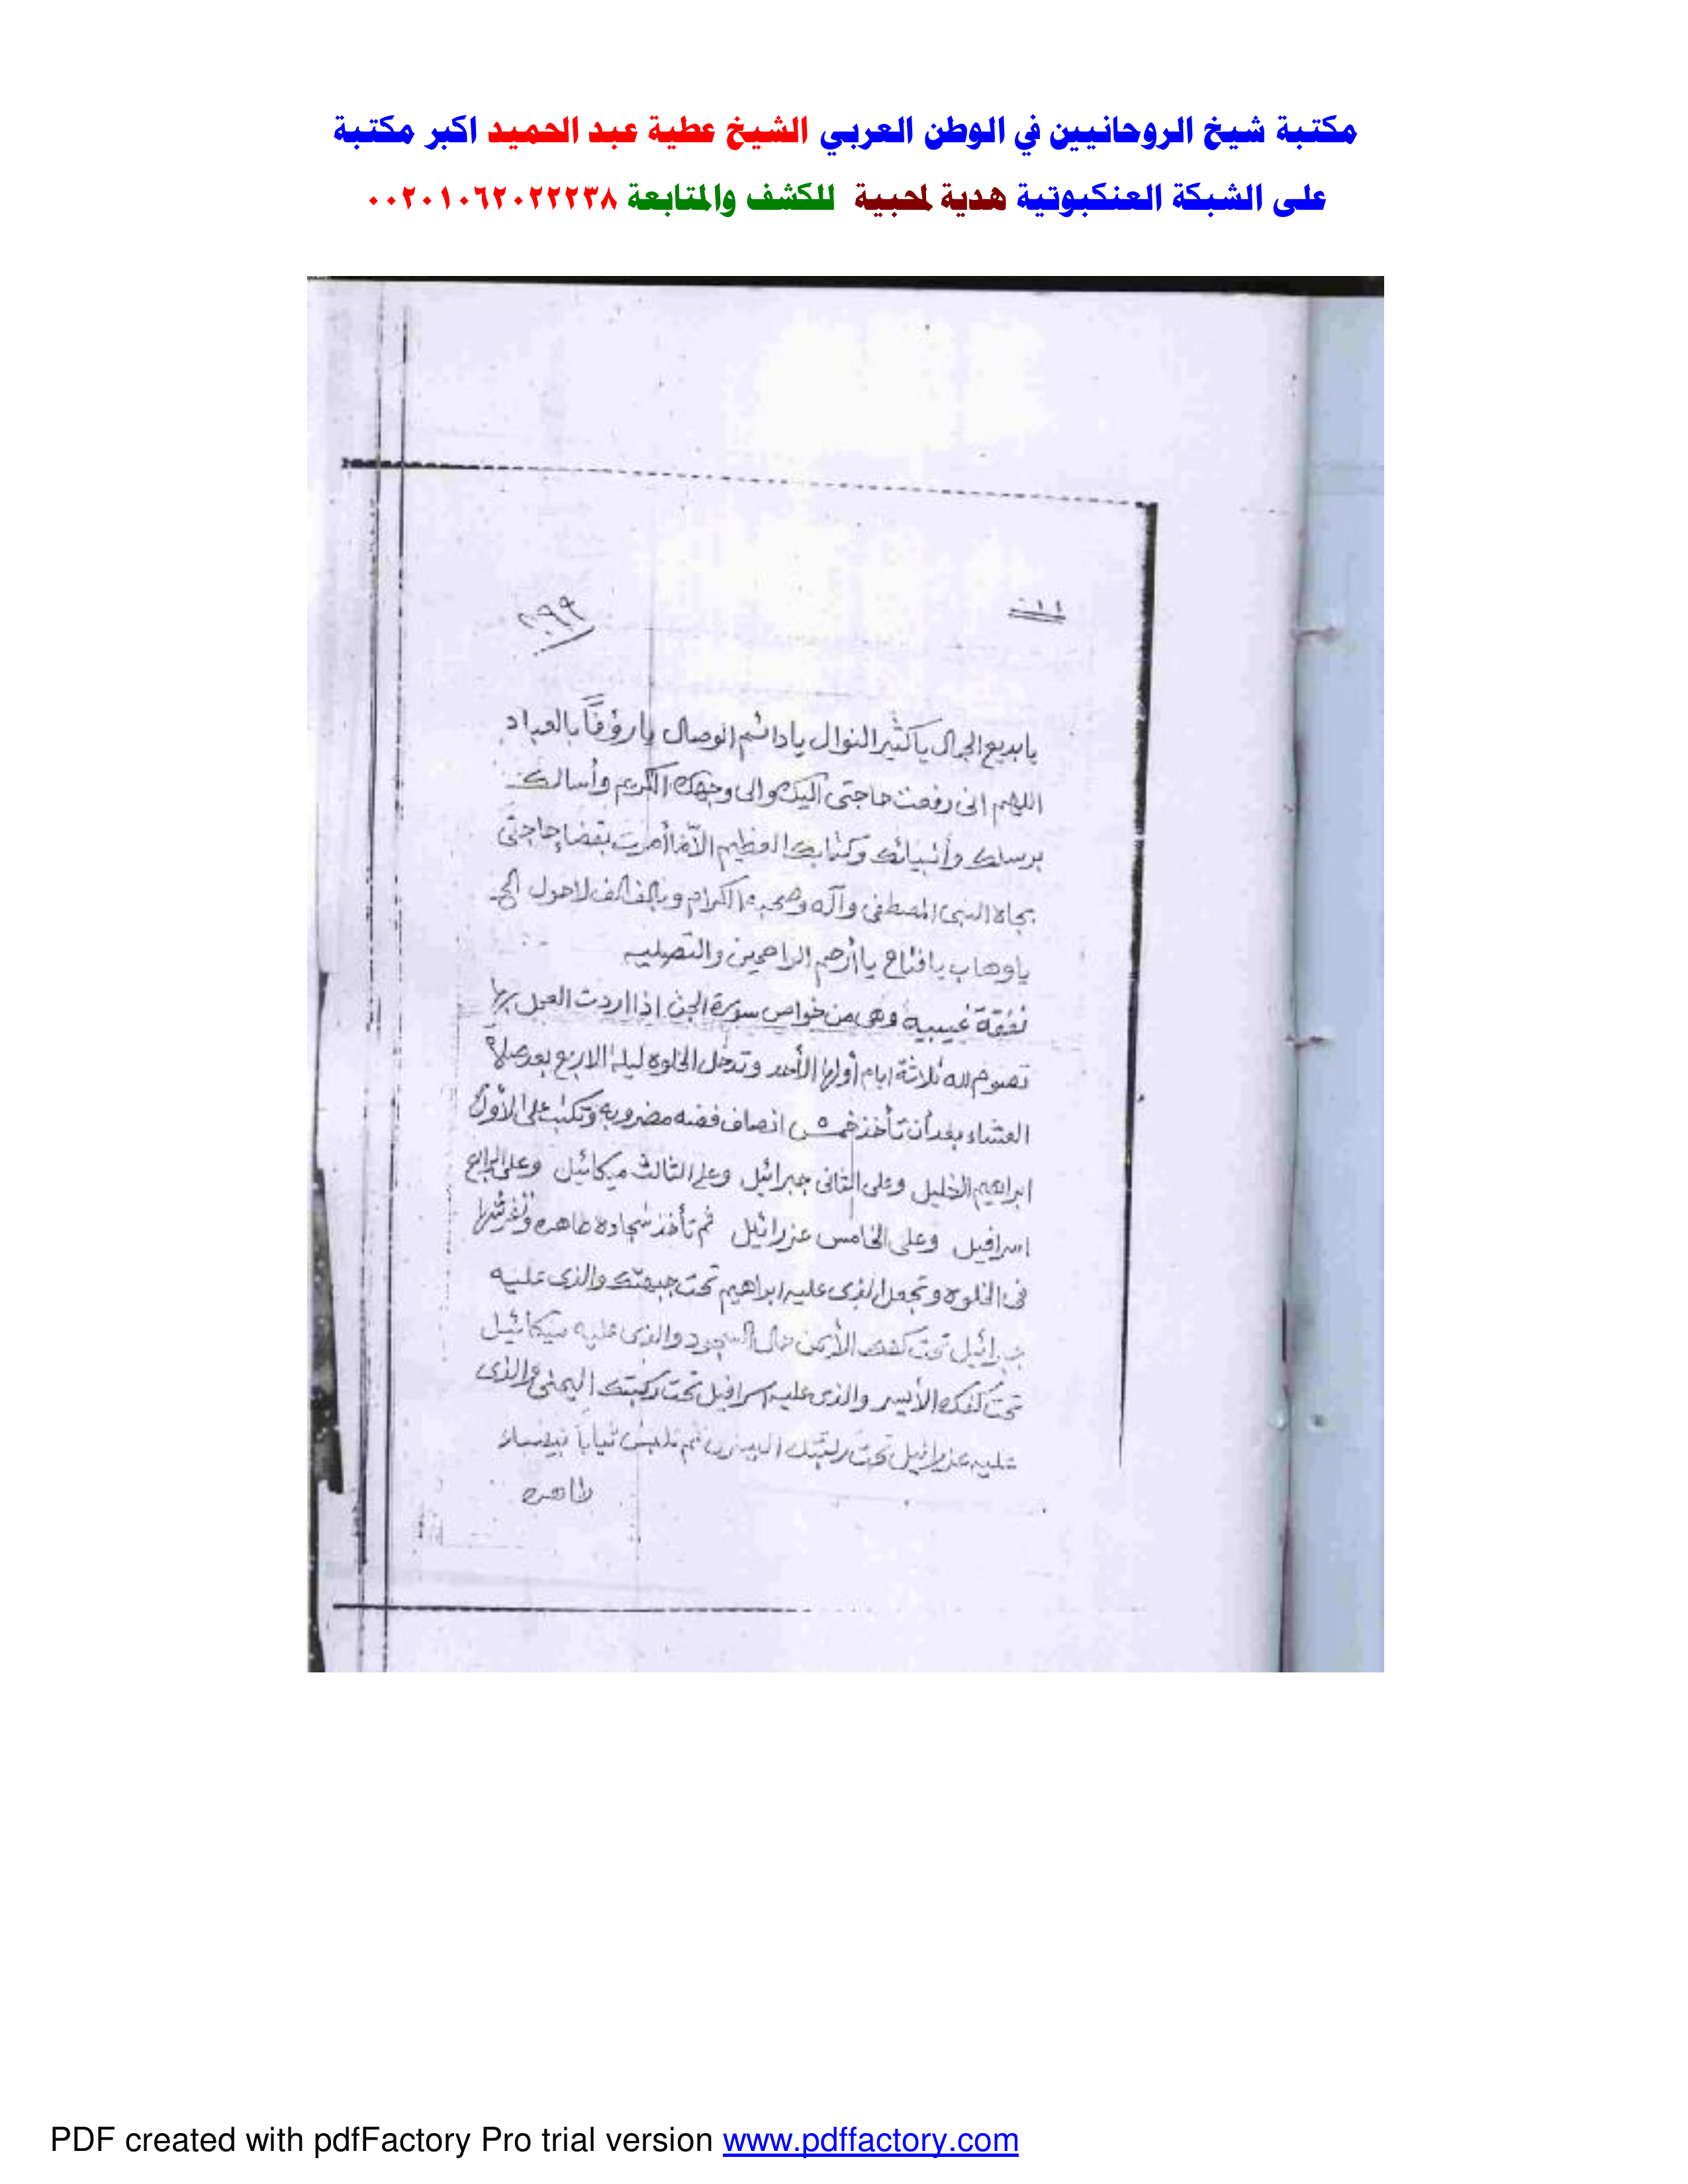 مكتبة شيخ الروحانيين في الوطن العربي الشيخ عطية عبد الحميد اكبر مكتبة
على الشبكة العنكبوتية هدية لمحبية للكشف والمتابعة ٠٠٢٠١٠٦٢٠٢٢٢٣٨
يا بديع الجمال يا كثير النوال يا دائم الوصال يا رؤفاً بالعباد
اللهم انى رفعت حاجتى اليك والى وجهك الكريم وأسالك
برسلك وأنبيائك وكتابك العظيم الا ما أمرت بقضا حاجتى
بجاه النبى المصطفى وآله وصحبه الكرام وبألف ألف لاحول الخ
يا وهاب يا فتاح يا أرحم الراحمين والتصليه
نفقة غيبيه وهى من خواص سورة الجن اذا اردت العمل بها
تصوم لله ثلاثة ايام أولها الأحد وتدخل الخلوه ليلة الاربع بعد صلاة
العشاء بعد أن تأخذ خمس انصاف فضه مضروبه وتكتب على الأول
ابراهيم الخليل وعلى الثانى جبرائيل وعلى الثالث ميكائيل وعلى الرابع
اسرافيل وعلى الخامس عزرائيل ثم تأخذ سجادة طاهره وتفرشها
فى الخلوه وتجعل الذى عليه ابراهيم تحت جبهتك والذى عليه
جبرائيل تحت كفك الأيمن حال السجود والذى عليه ميكائيل
تحت كفك الأيسر والذى عليه اسرافيل تحت ركبتك اليمنى والذى
عليه عزرائيل تحت ركبتك اليسرى ثم تلبس ثياباً بيضاء
طاهره
PDF created with pdfFactory Pro trial version www.pdffactory.com